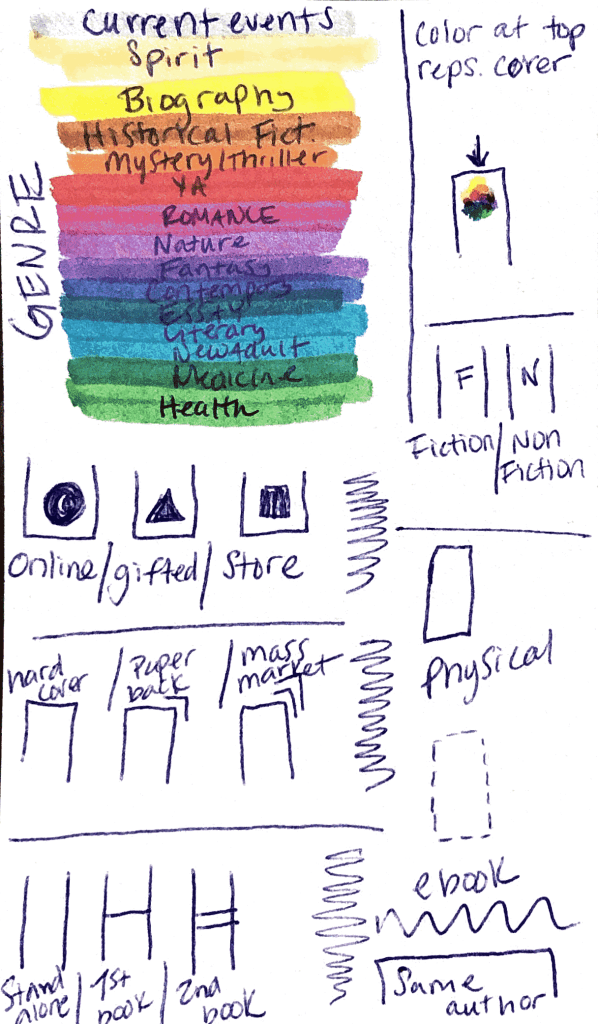 GENRE
Current events
Spirit
Biography
Historical Fict.
Mystery/Thriller
YA
ROMANCE
Nature
Fantasy
Contempory
Essay
Literary
New Adult
Medicine
Health
Color at top
reps. cover
F N
Fiction/Non
Fiction
Online/gifted/Store
Physical
hard
cover
/
Paper
back
/
mass
market
ebook
Stand
alone
/
1st
book
/
2nd
book
Same
author